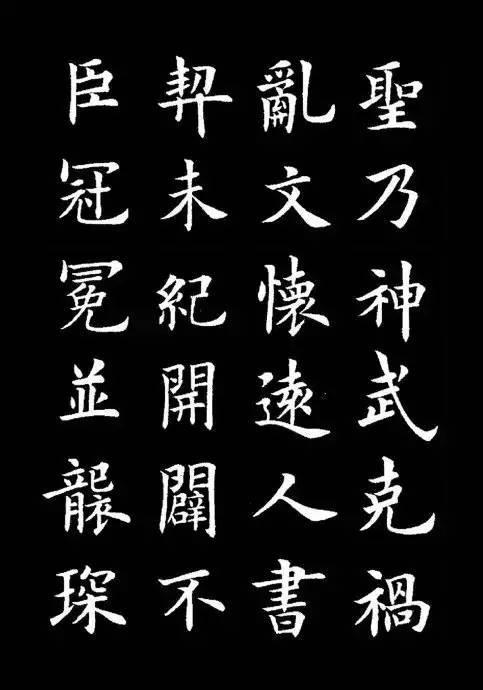 聖乃神武克禍
亂文懷遠人書
契未紀開闢不
臣冠冕並襲琛